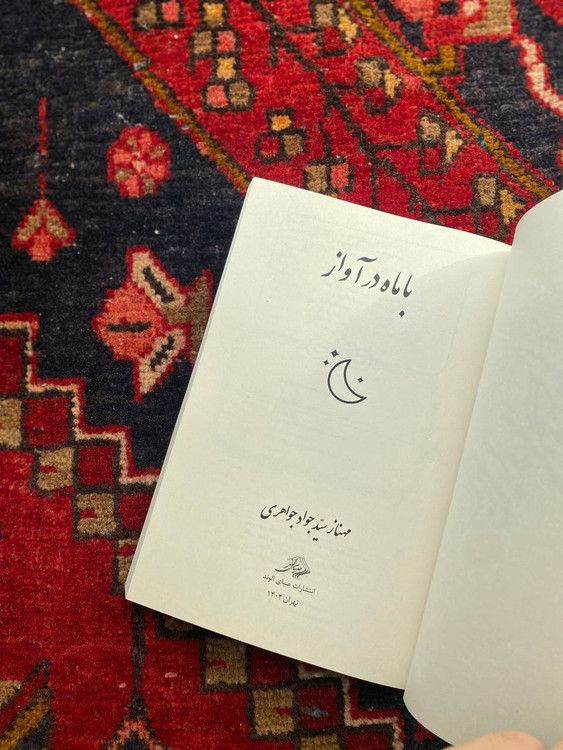 با ماه در آواز
مهناز سیّد جواد جواهری
انتشارات صبای الوند
تهران ۱۴۰۴